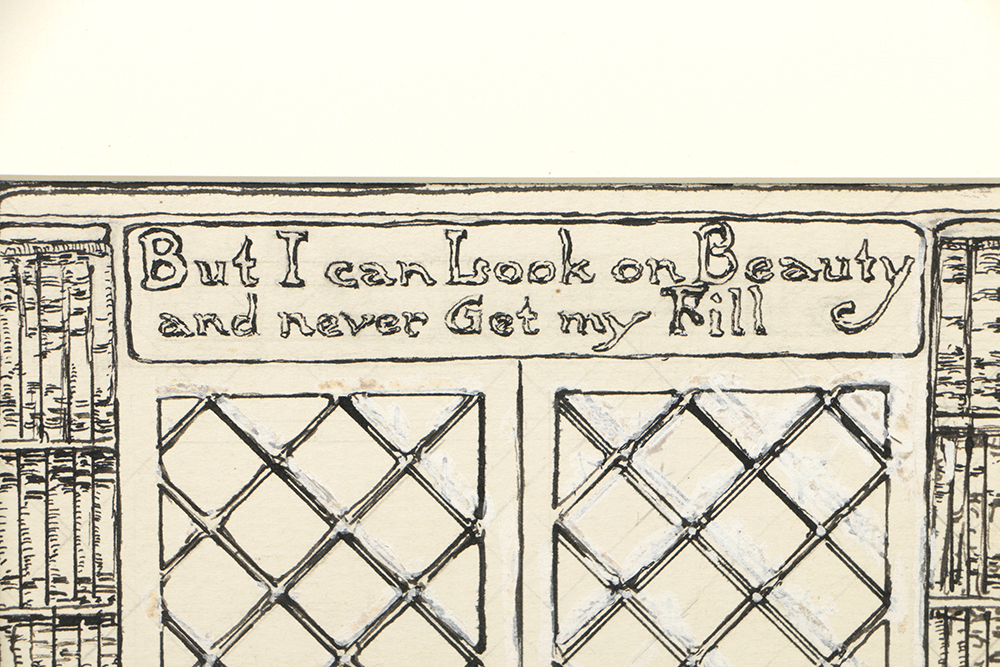 But I can Look on Beauty
and never Get my Fill